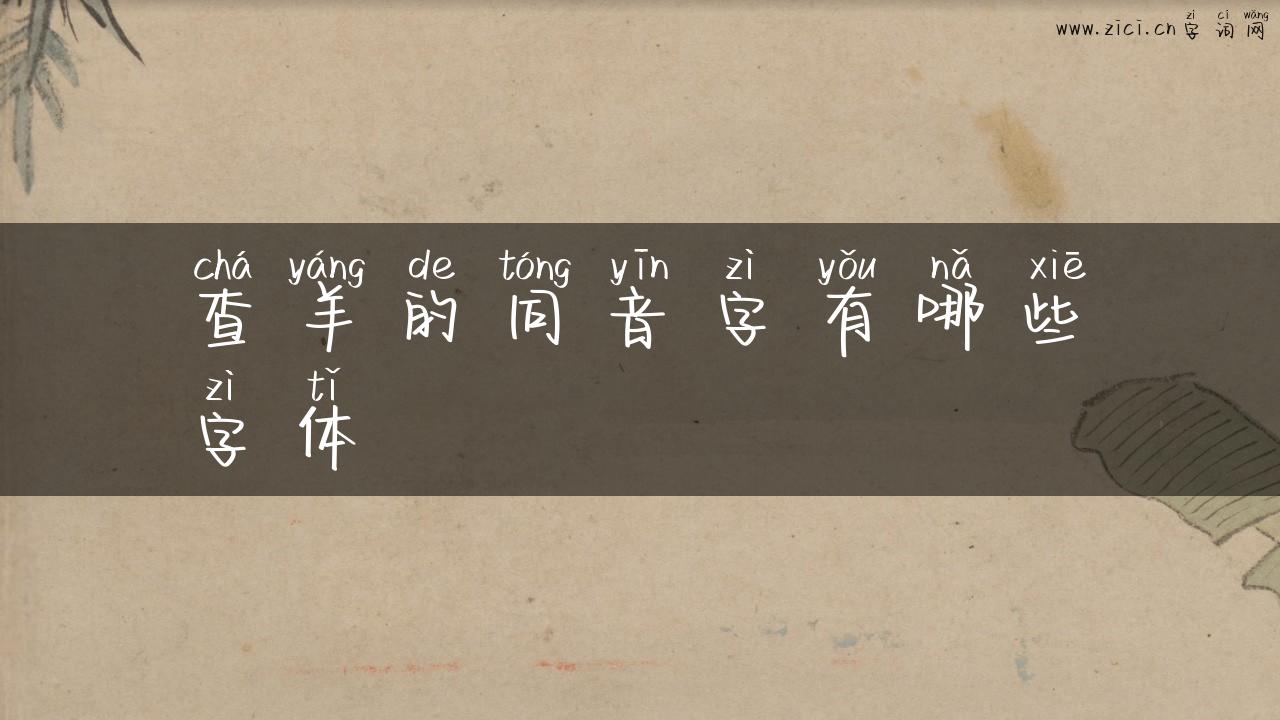 zì cí wǎng
www.zici.cn 字 词 网
chá yáng de tóng yīn zì yǒu nǎ xiē
查 羊 的 同 音 字 有 哪 些
zì tǐ
字 体